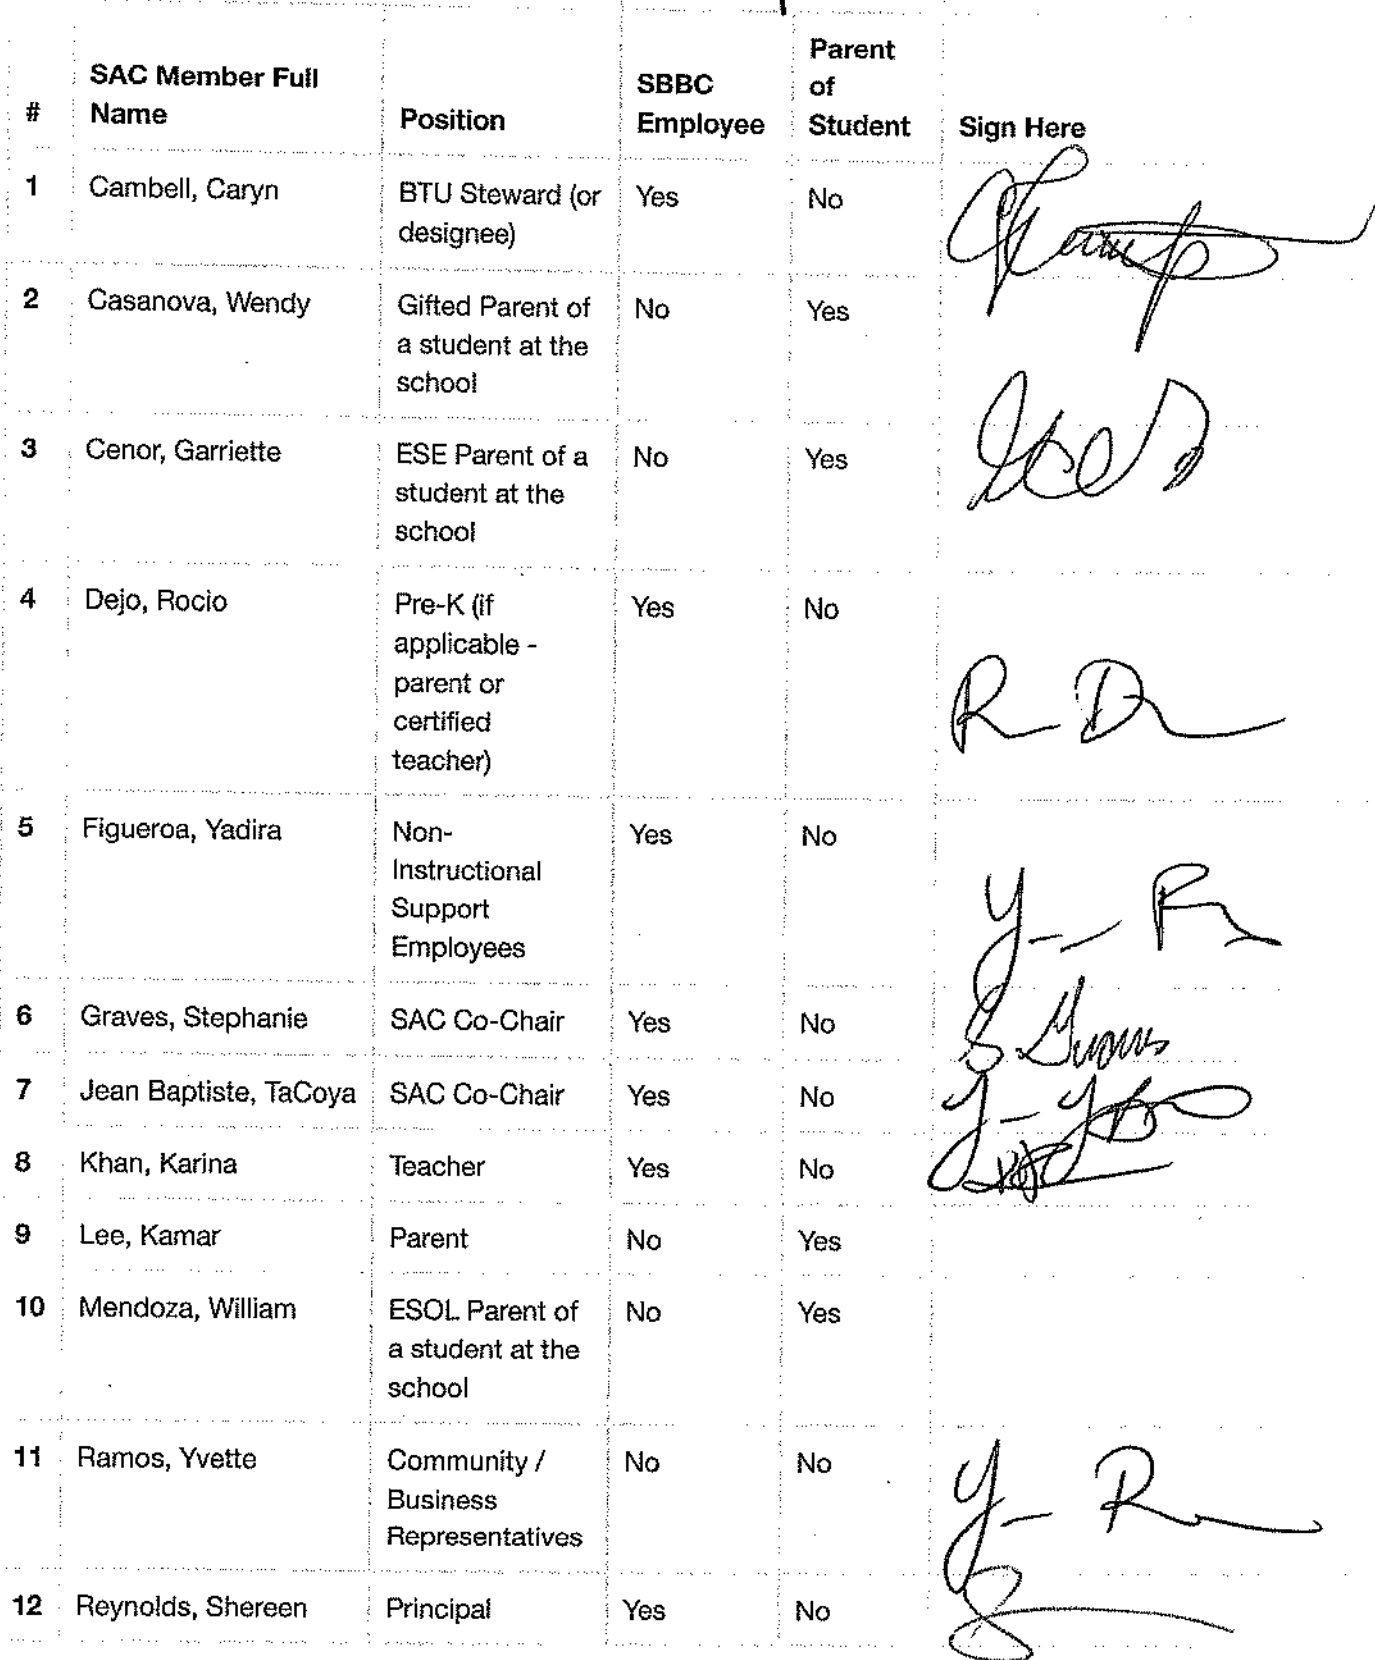 # SAC Member Full Name Position SBBC Employee Parent of Student Sign Here
1 Cambell, Caryn BTU Steward (or designee) Yes No
2 Casanova, Wendy Gifted Parent of a student at the school No Yes
3 Cenor, Garriette ESE Parent of a student at the school No Yes
4 Dejo, Rocio Pre-K (if applicable - parent or certified teacher) Yes No R D
5 Figueroa, Yadira Non-Instructional Support Employees Yes No
6 Graves, Stephanie SAC Co-Chair Yes No S Graves
7 Jean Baptiste, TaCoya SAC Co-Chair Yes No
8 Khan, Karina Teacher Yes No
9 Lee, Kamar Parent No Yes
10 Mendoza, William ESOL Parent of a student at the school No Yes
11 Ramos, Yvette Community / Business Representatives No No Y R
12 Reynolds, Shereen Principal Yes No